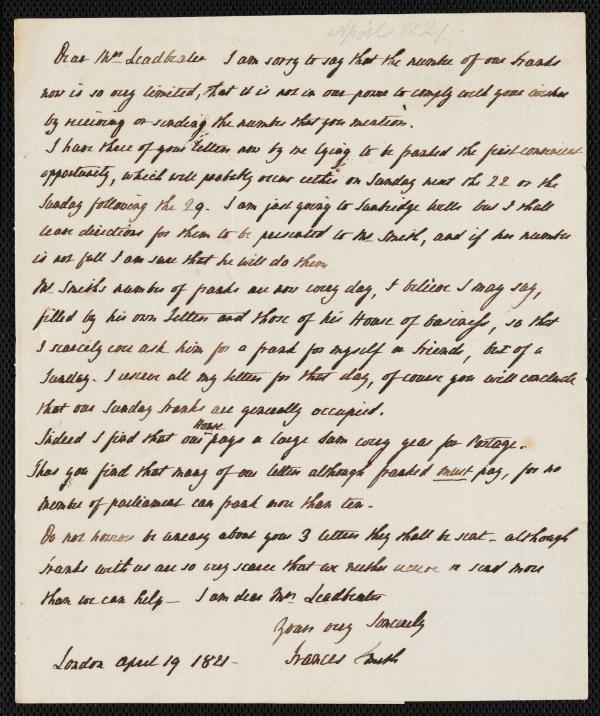 April 1821.
Dear Mrs Leadbeater I am sorry to say that the number of our franks
now is so very limited, that it is not in our power to comply with your wishes
by receiving or sending the number that you mention.
I have three of your letters now by me lying to be franked the first convenient
opportunity, which will probably occur either on Sunday next the 22 or the
Sunday following the 29. I am just going to Tunbridge Wells but I shall
leave directions for them to be presented to Mr Smith, and if his number
is not full I am sure that he will do them
Mr Smiths number of franks are now every day, I believe I may say,
filled by his own Letters and those of his House of business, so that
I scarcely ever ask him for a frank for myself or friends, but of a
Sunday. I reserve all my letters for that day, of course you will conclude
that our Sunday franks are generally occupied.
Indeed I find that our House pays a large Sum every year for Postage.
Thus you find that many of our letters although franked must pay, for no
member of parliament can frank more than ten.
Do not however be uneasy about your 3 letters they shall be sent - although
franks with us are so very scarce that we neither receive or send more
than we can help - I am dear Mrs Leadbeater
Yours very Sincerely
London April 19 1821 - Frances Smith